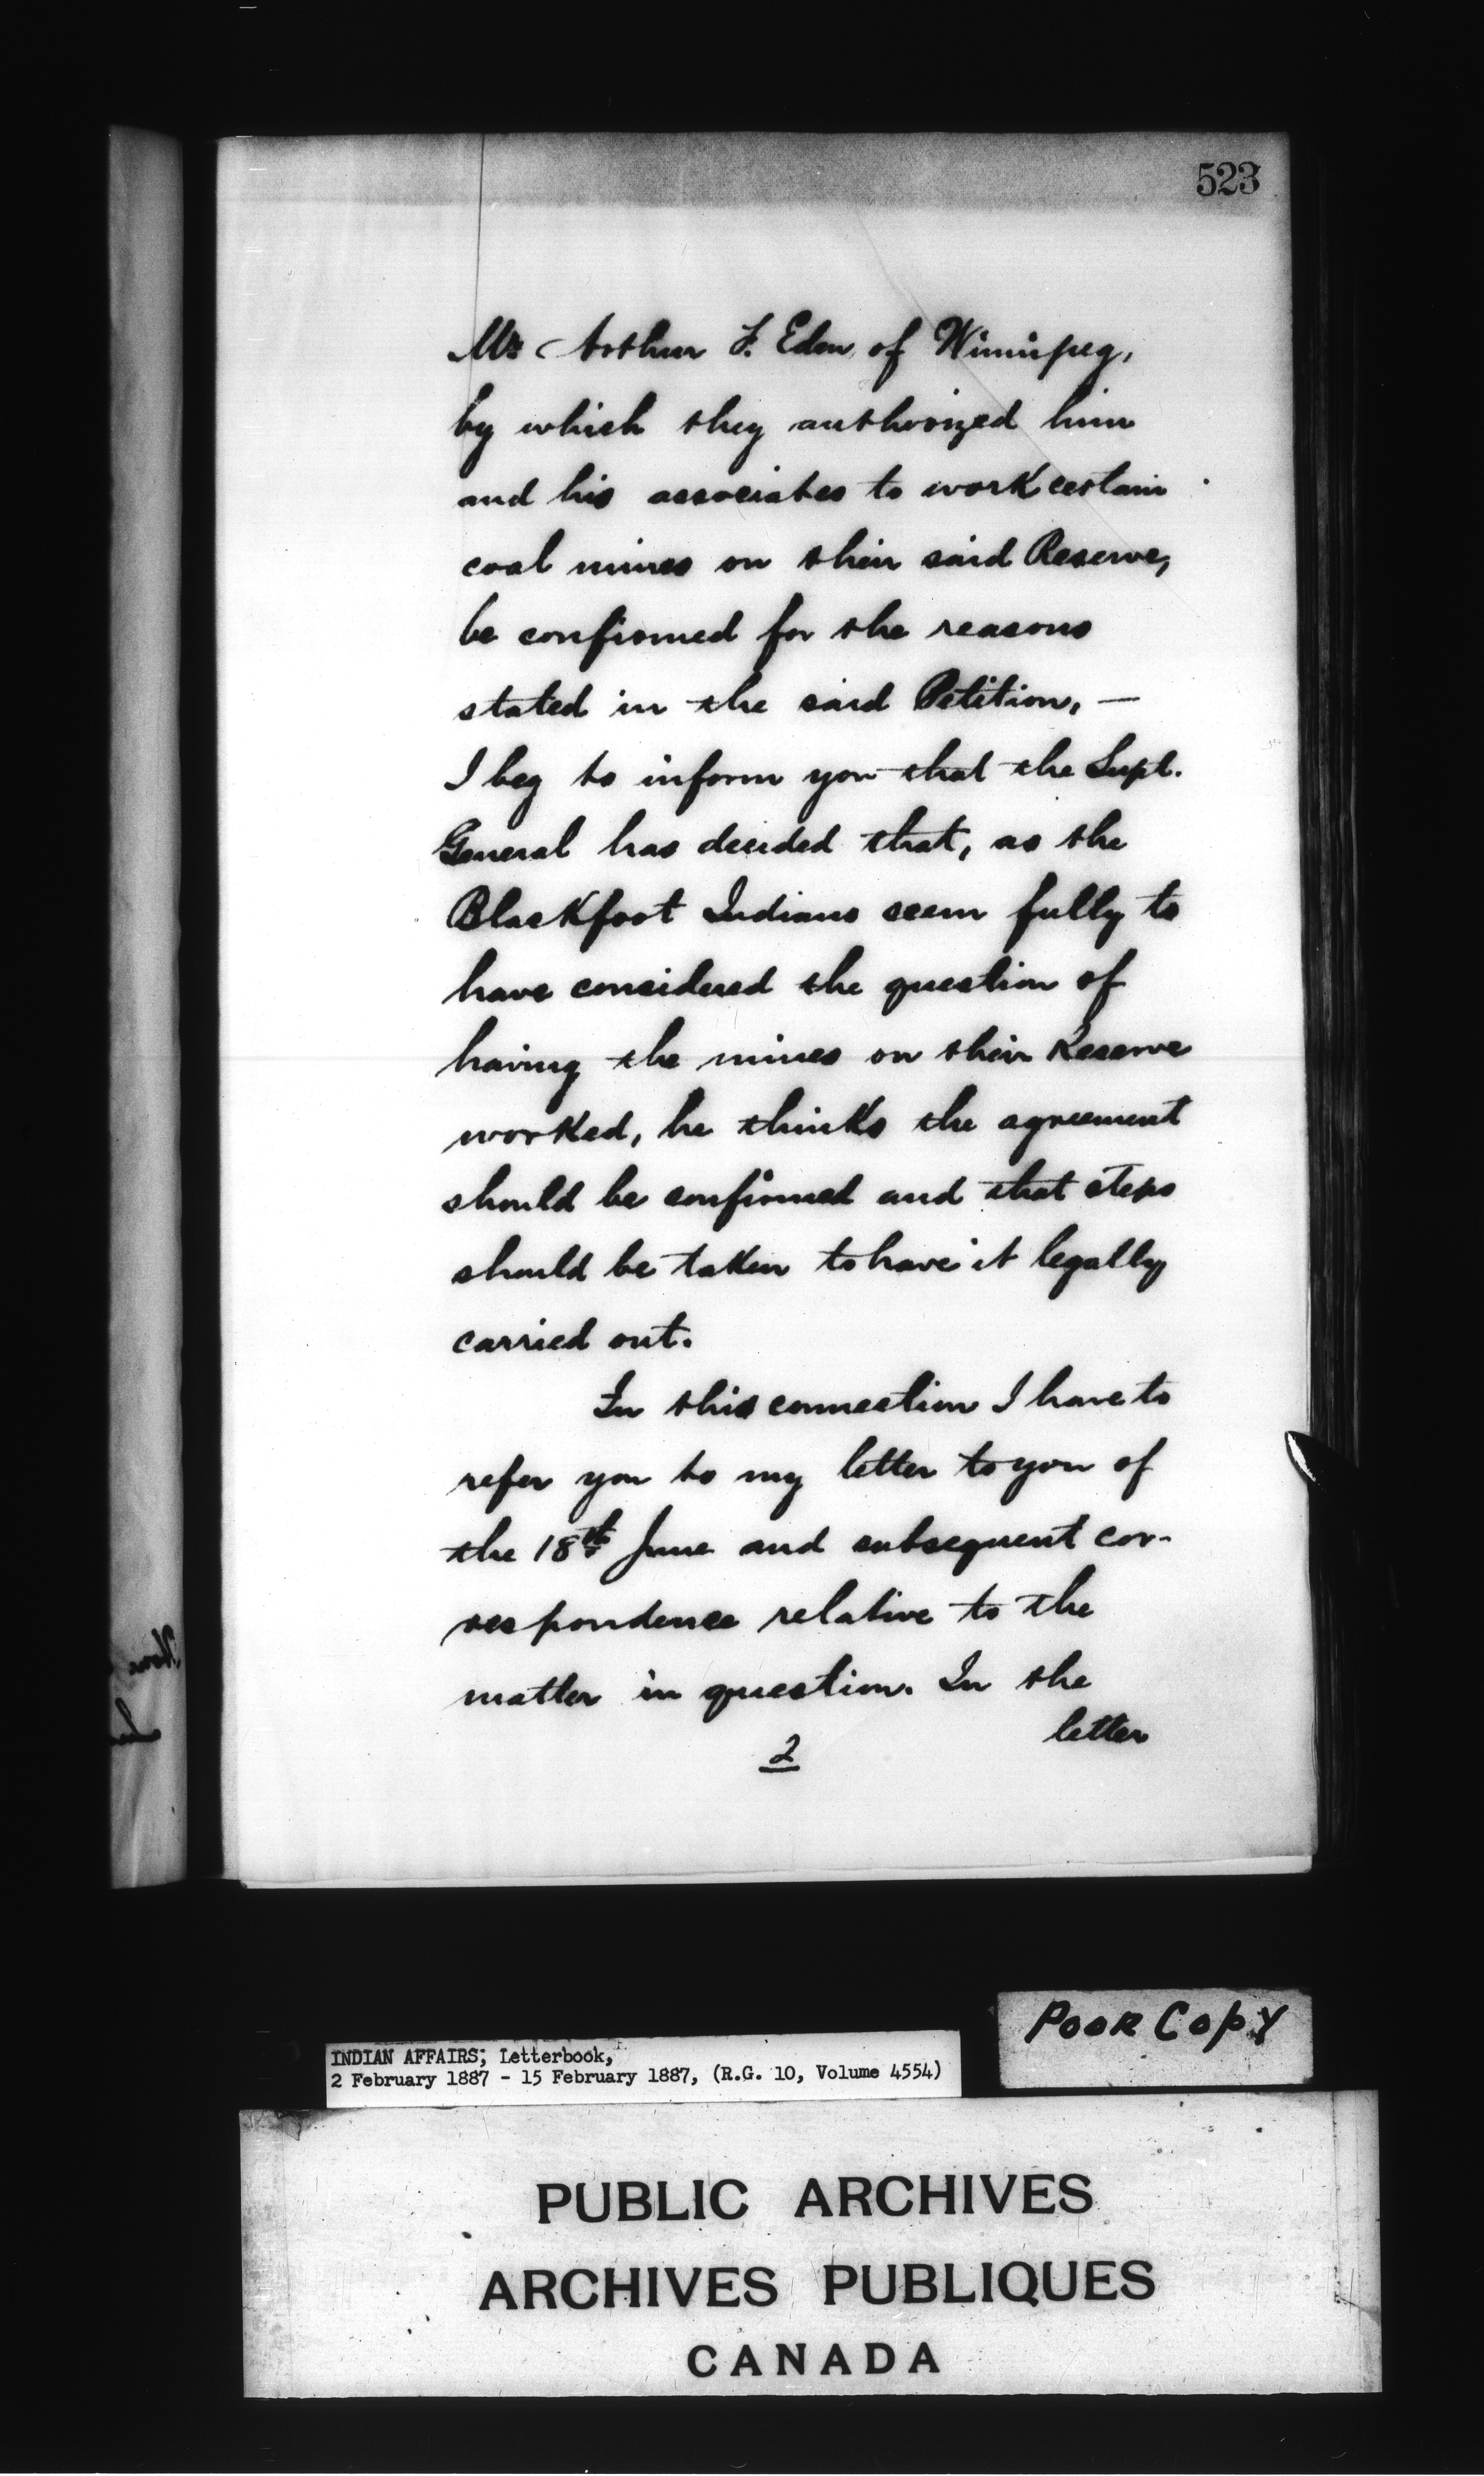 523
Mr Arthur F. Eden of Winnipeg,
by which they authorized him
and his associates to work certain
coal mines on their said Reserve,
be confirmed for the reasons
stated in the said Petition, —
I beg to inform you that the Supt.
General has decided that, as the
Blackfoot Indians seem fully to
have considered the question of
having the mines on their Reserve
worked, he thinks the agreement
should be confirmed and that steps
should be taken to have it legally
carried out.
In this connection I have to
refer you to my letter to you of
the 18th June and subsequent cor-
respondence relative to the
matter in question. In the
letter
2
POOR COPY
INDIAN AFFAIRS; Letterbook,
2 February 1887 - 15 February 1887, (R.G. 10, Volume 4554)
PUBLIC ARCHIVES
ARCHIVES PUBLIQUES
CANADA